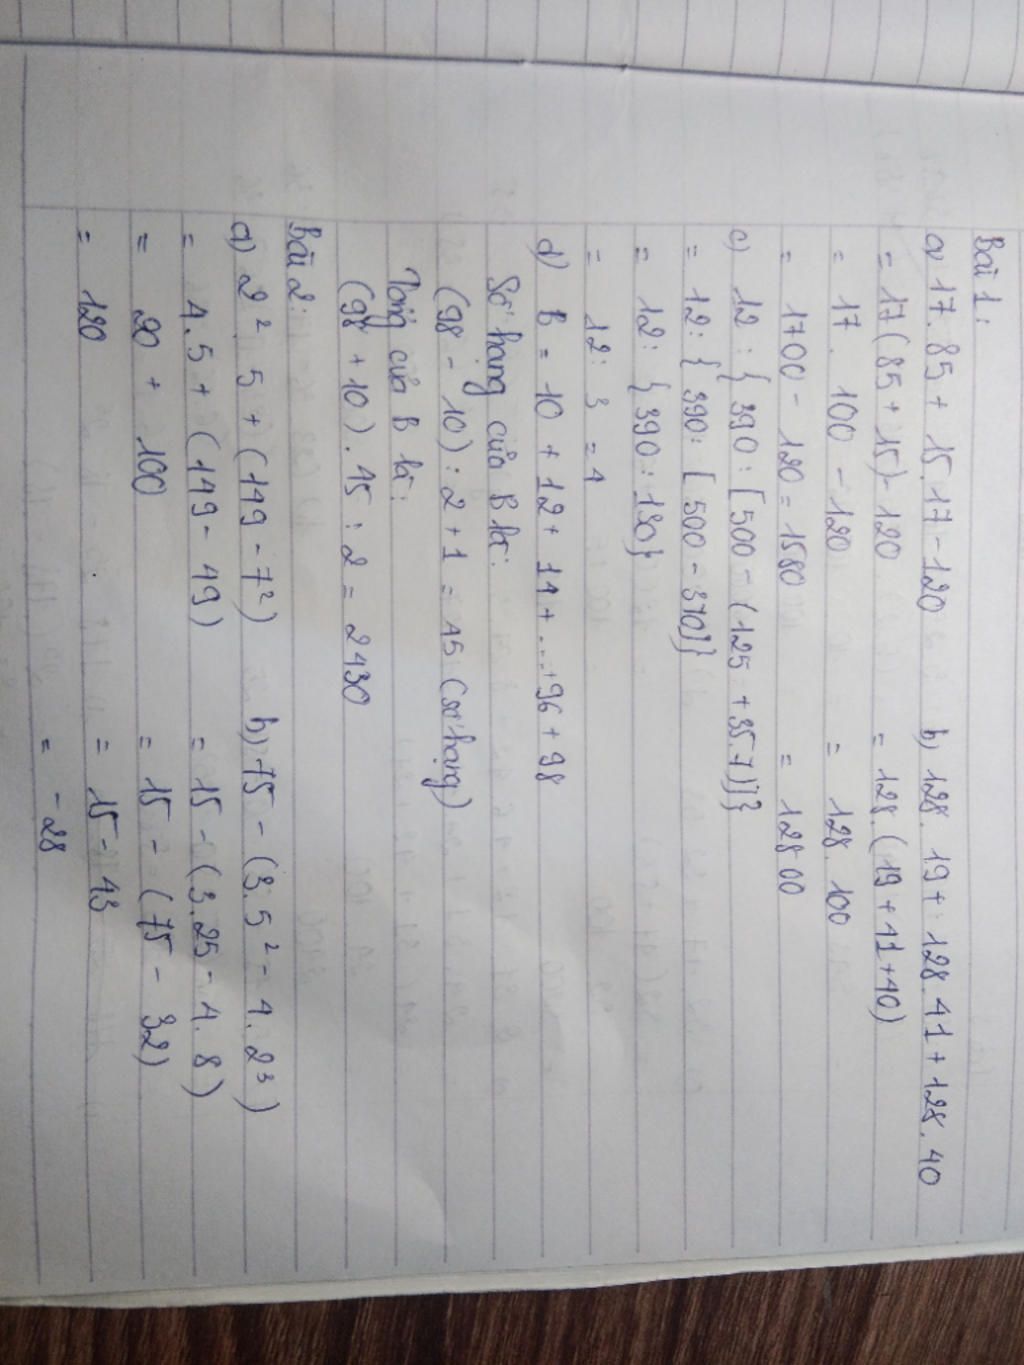 Bài 1:
a) 17.85 + 15.17 - 120
b) 128.19 + 128.41 + 128.40
= 17(85 + 15) - 120
= 128.(19 + 41 + 40)
= 17. 100 - 120
= 128. 100
= 1700 - 120 = 1580
= 12800
c) 12 : { 390 : [ 500 - (125 + 35.7)]}
= 12 : { 390 : [ 500 - 370]}
= 12 : { 390 : 130}
= 12 : 3 = 4
d) B = 10 + 12 + 14 + ... + 96 + 98
Số hạng của B là:
(98 - 10) : 2 + 1 = 45 (số hạng)
Tổng của B là:
(98 + 10) . 45 : 2 = 2430
Bài 2:
a) 2² 5 + (149 - 7²)
b) 75 - (3.5² - 4.2³)
= 4.5 + (149 - 49)
= 15 - (3.25 - 4.8)
= 20 + 100
= 15 - (75 - 32)
= 120
= 15 - 43
= -28